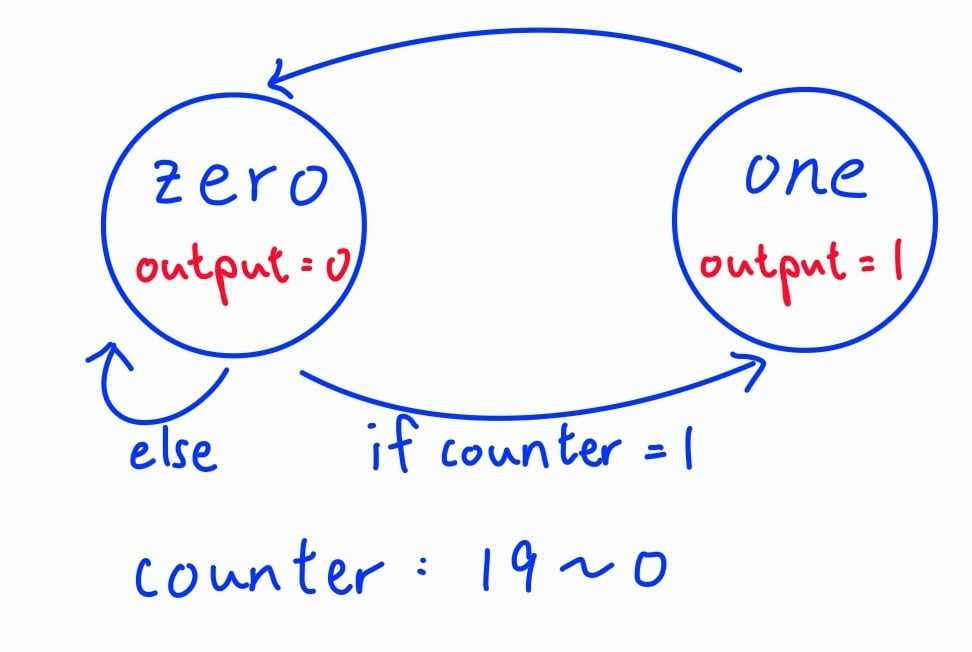 zero
output = 0
one
output = 1
else
if counter = 1
counter : 19 ~ 0